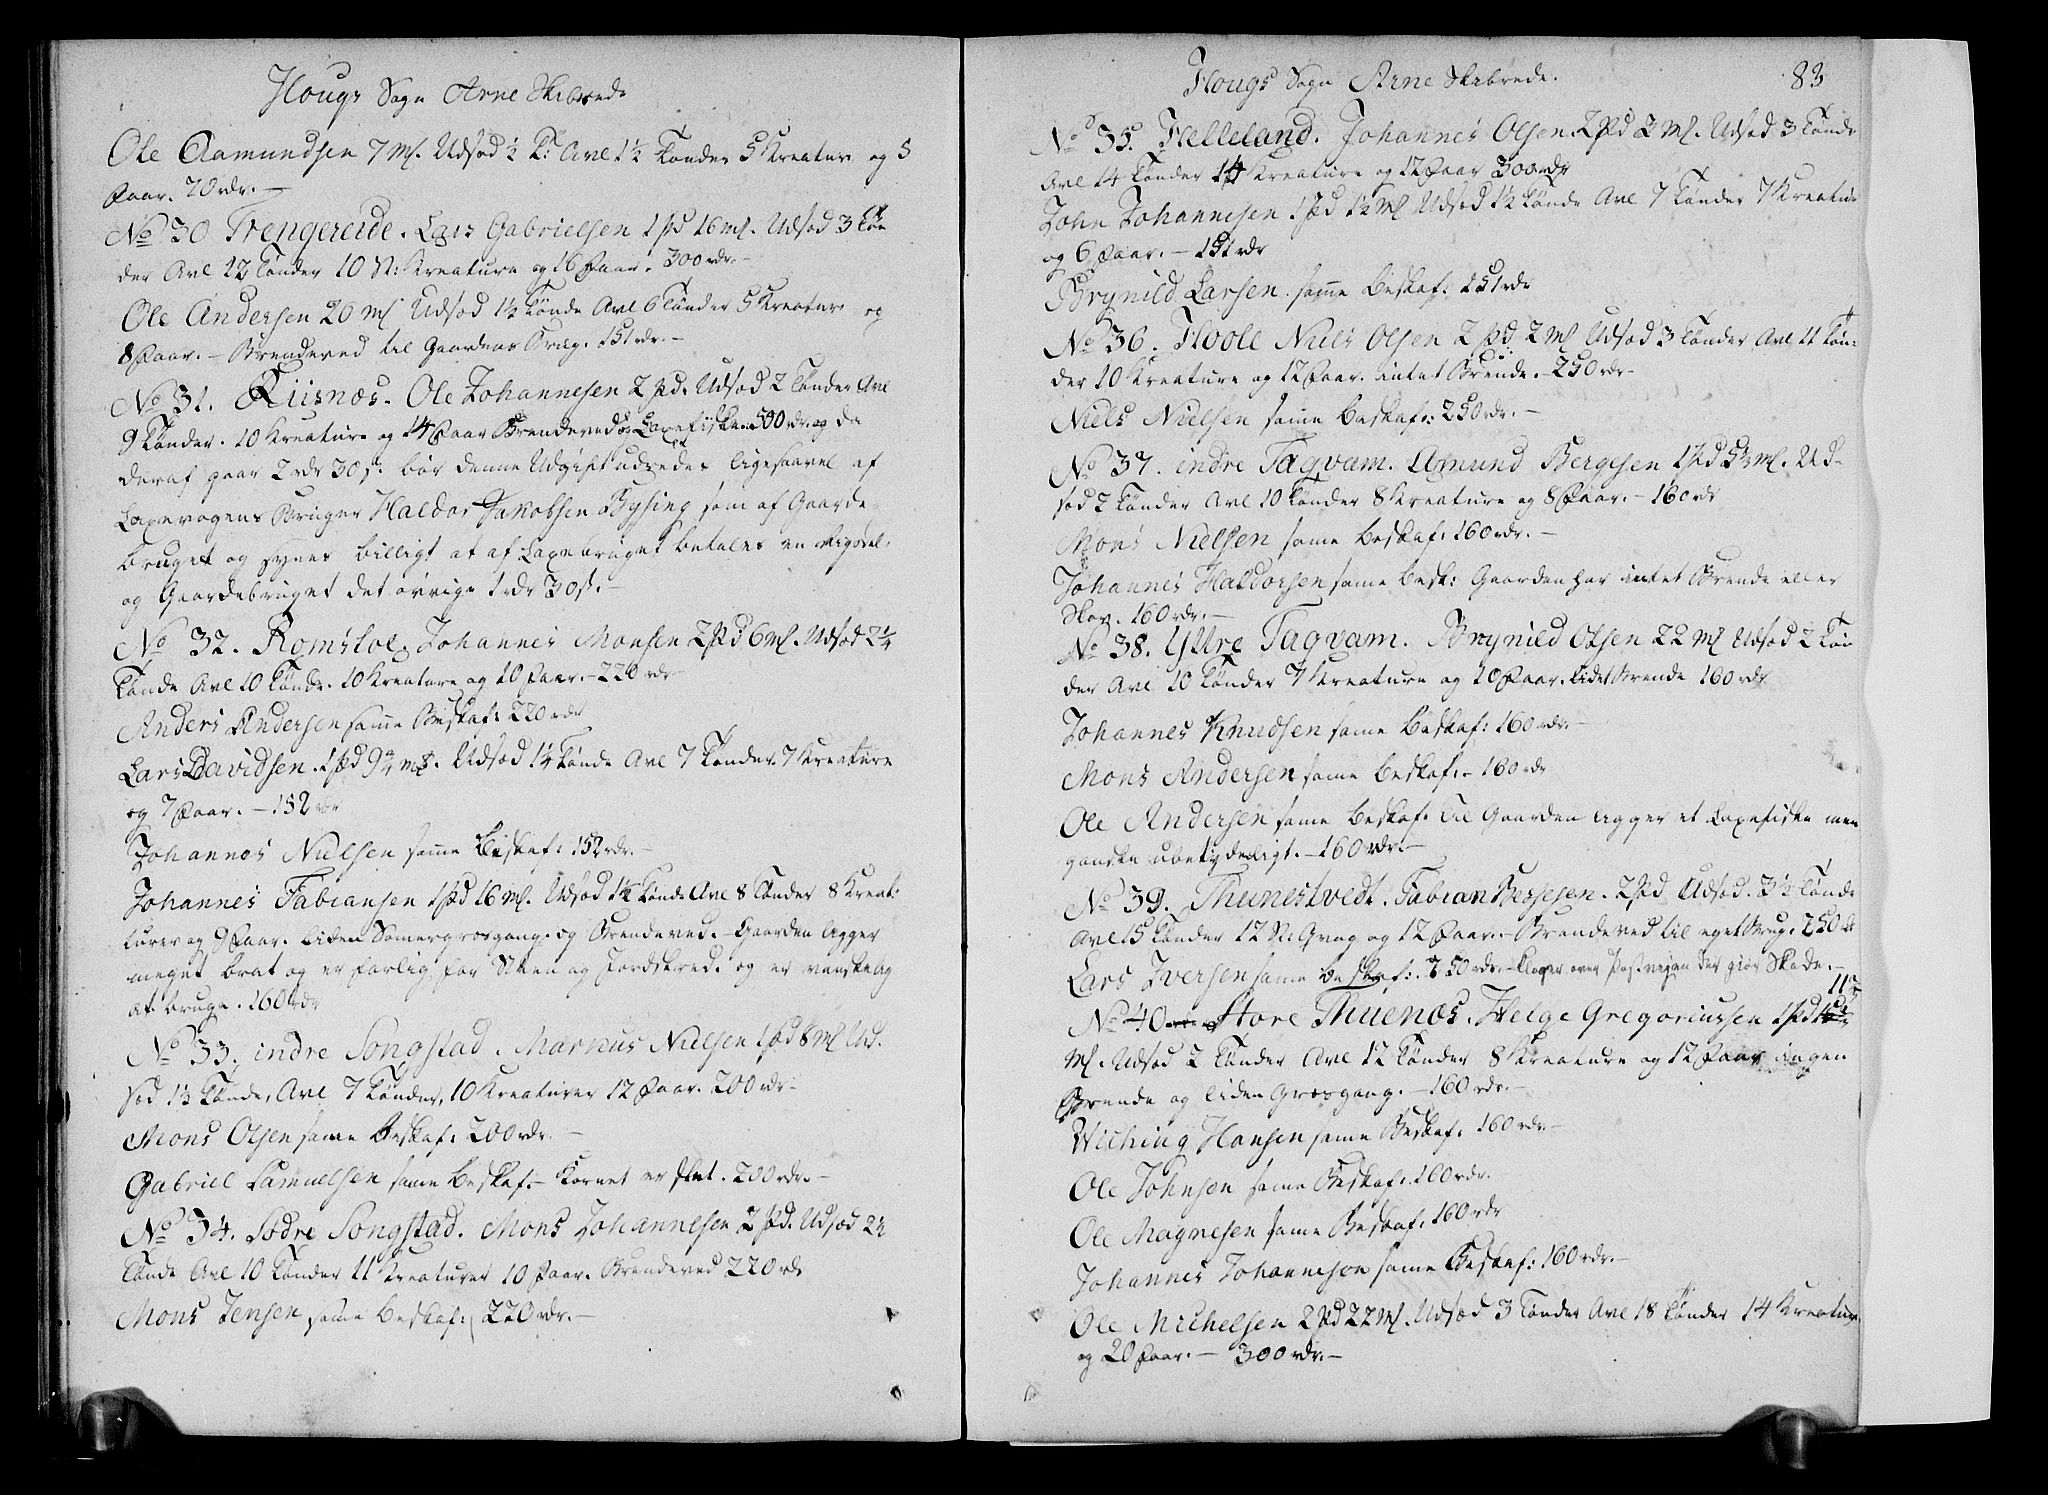 Hougs Sogn Arne Skibrede
Ole Aamundsen 7 ml. Udsæd ½ T: Avl 1½ Tønder 5 Kreatur og 5
Faar. 70 rdr. —
No 30 Trengereide. Lars Gabrielsen 1 pd 16 ml. Udsæd 3 Tøn
der Avl 12 Tønder 10 N: Kreature og 16 Faar. 300 rdr. —
Ole Andersen 20 ml Udsæd 1½ Tønde Avl 6 Tønder 5 Kreatur og
8 Faar. — Brendeved til Gaardens Brug. 151 rdr. —
No 31. Riisnæs. Ole Johannesen 2 pd. Udsæd 2 Tønder Avl
9 Tønder. 10 Kreature og 14 Faar Brendeved og Laxefiske. 500 rdr. og da
deraf gaar 2 rdr 30 s. bør denne Udgift udredes ligesaavel af
Laxevogens Bruger Haldor Jakobsen Bysing som af Gaarde-
bruget og synes billigt at af Laxebruget betales en
og Gaardebruget det øvrige 1 rdr 30 s. —
No 32. Romsloe. Johannes Monsen 2 pd 6 ml. Udsæd 2¼
Tønde Avl 10 Tønde. 10 Kreature og 10 Faar. — 220 rdr
Anders Andersen same Beskaf: 220 rdr
Lars Davidsen. 1 pd 9¾ ml. Udsæd 1¼ Tønde Avl 7 Tønder 7 Kreature
og 7 Faar. — 152 rdr
Johannes Nielsen same Beskaf: 152 rdr. —
Johannes Fabiansen 1 pd 16 ml. Udsæd 1½ Tønde Avl 8 Tønder 8 Kreat-
turer og 9 Faar. liden Somergræsgang og Brendeved. — Gaarden ligger
meget brat og er farlig for Steen og Jordskred. og er vanskelig
at bruge. 160 rdr
No 33. indre Songstad. Marnus Nielsen 1 pd 8 ml Ud-
sæd 1½ Tønde, Avl 7 Tønder, 10 Kreaturer 12 Faar. 200 rdr —
Mons Olsen same Beskaf: 200 rdr. —
Gabriel Samuelsen same Beskaf. — Kornet er slet. 200 rdr. —
No 34. Sødre Songstad. Mons Johannesen 2 pd. Udsæd 2½
Tønde Avl 10 Tønder 11 Kreaturer 10 Faar. Brendeved 220 rdr
Mons Jensen same Beskaf: 220 rdr. —
Hougs Sogn Arne Skibrede. 83
No 35. Helleland. Johannes Olsen. 2 pd 2 ml. Udsæd 3 Tønde
Avl 14 Tønder 14 Kreature og 12 Faar 300 rdr
John Johannesen 1 pd 1½ ml Udsæd 1½ Tønde Avl 7 Tønder 7 Kreature
og 6 Faar. — 151 rdr
Brynild Larsen. same Beskaf: 151 rdr
No 36. Hoole Niels Olsen 2 pd 2 ml Udsæd 3 Tønder Avl 11 Tøn-
der 10 Kreature og 12 Faar. intet Brende. — 250 rdr
Niels Nielsen same Beskaf: 250 rdr. —
No 37. indre Tagvam. Amund Bergesen 1 pd 5½ ml. Ud-
sæd 2 Tønder Avl 10 Tønder 8 Kreature og 8 Faar. — 160 rdr
Mons Nielsen same Beskaf: 160 rdr. —
Johannes Haldorsen same Besk: Gaarden har intet Brende eller
Skov. 160 rdr. —
No 38. Yttre Tagvam. Brynild Olsen 22 ml Udsæd 2 Tøn
der Avl 10 Tønder 7 Kreature og 10 Faar. lidet Brende 160 rdr
Johannes Knudsen same Beskaf: 160 rdr. —
Mons Andersen same Beskaf: — 160 rdr
Ole Andersen same Beskaf. Til Gaarden ligger et Laxefiske men
ganske ubetydeligt. — 160 rdr. —
No 39. Thunestvedt. Fabian Bessesen. 2 pd Udsæd. 3½ Tønde
Avl 15 Tønder 12 N: Qvæg og 12 Faar. — Brendeved til eget Brug. 250 rdr
Lars Iversen same Beskaf: 250 rdr. — klager over Postveyen der giør Skade. —
No 40 Store Thuenæs. Helge Gregoriussen 1 pd 11½
ml. Udsæd 2 Tønder Avl 12 Tønder 8 Kreature og 12 Faar ingen
Brende og liden Græsgang. — 160 rdr. —
Wiching Hansen same Beskaf. 160 rdr —
Ole Johnsen same Beskaf. 160 rdr.
Ole Magnesen same Beskaf. 160 rdr
Johannes Johannesen same Beskaf: 160 rdr. —
Ole Michelsen 2 pd 22 ml. Udsæd 3 Tønder Avl 18 Tønder 14 Kreatur
og 20 Faar. — 300 rdr. —